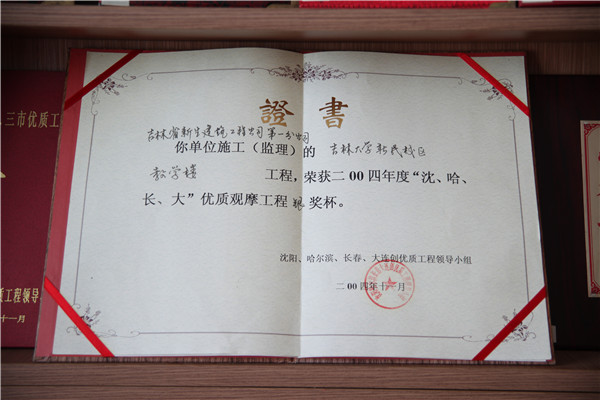 證書
吉林省新生建筑工程公司第一分公司
你单位施工（监理）的 吉林大学新民校区
教学楼 工程，荣获二00四年度“沈、哈、
长、大”优质观摩工程银奖杯。
沈阳、哈尔滨、长春、大连创优质工程领导小组
二00四年十一月
三市优质工
质工程领导
十一月